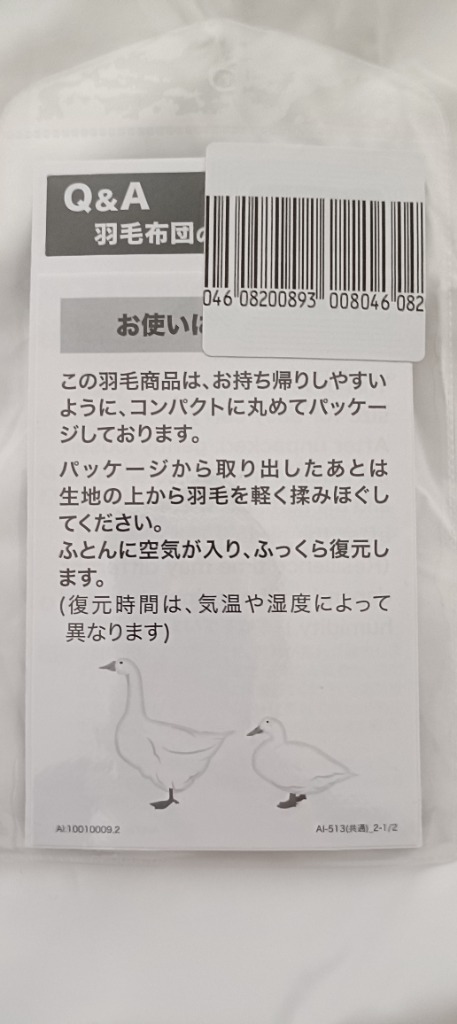 Q&A
羽毛布団の
046 08200893 008046 082
お使いに
この羽毛商品は、お持ち帰りしやすい
ように、コンパクトに丸めてパッケー
ジしております。
パッケージから取り出したあとは
生地の上から羽毛を軽く揉みほぐし
てください。
ふとんに空気が入り、ふっくら復元し
ます。
(復元時間は、気温や湿度によって
異なります)
AI:10010009.2
AI-513(共通)_2-1/2